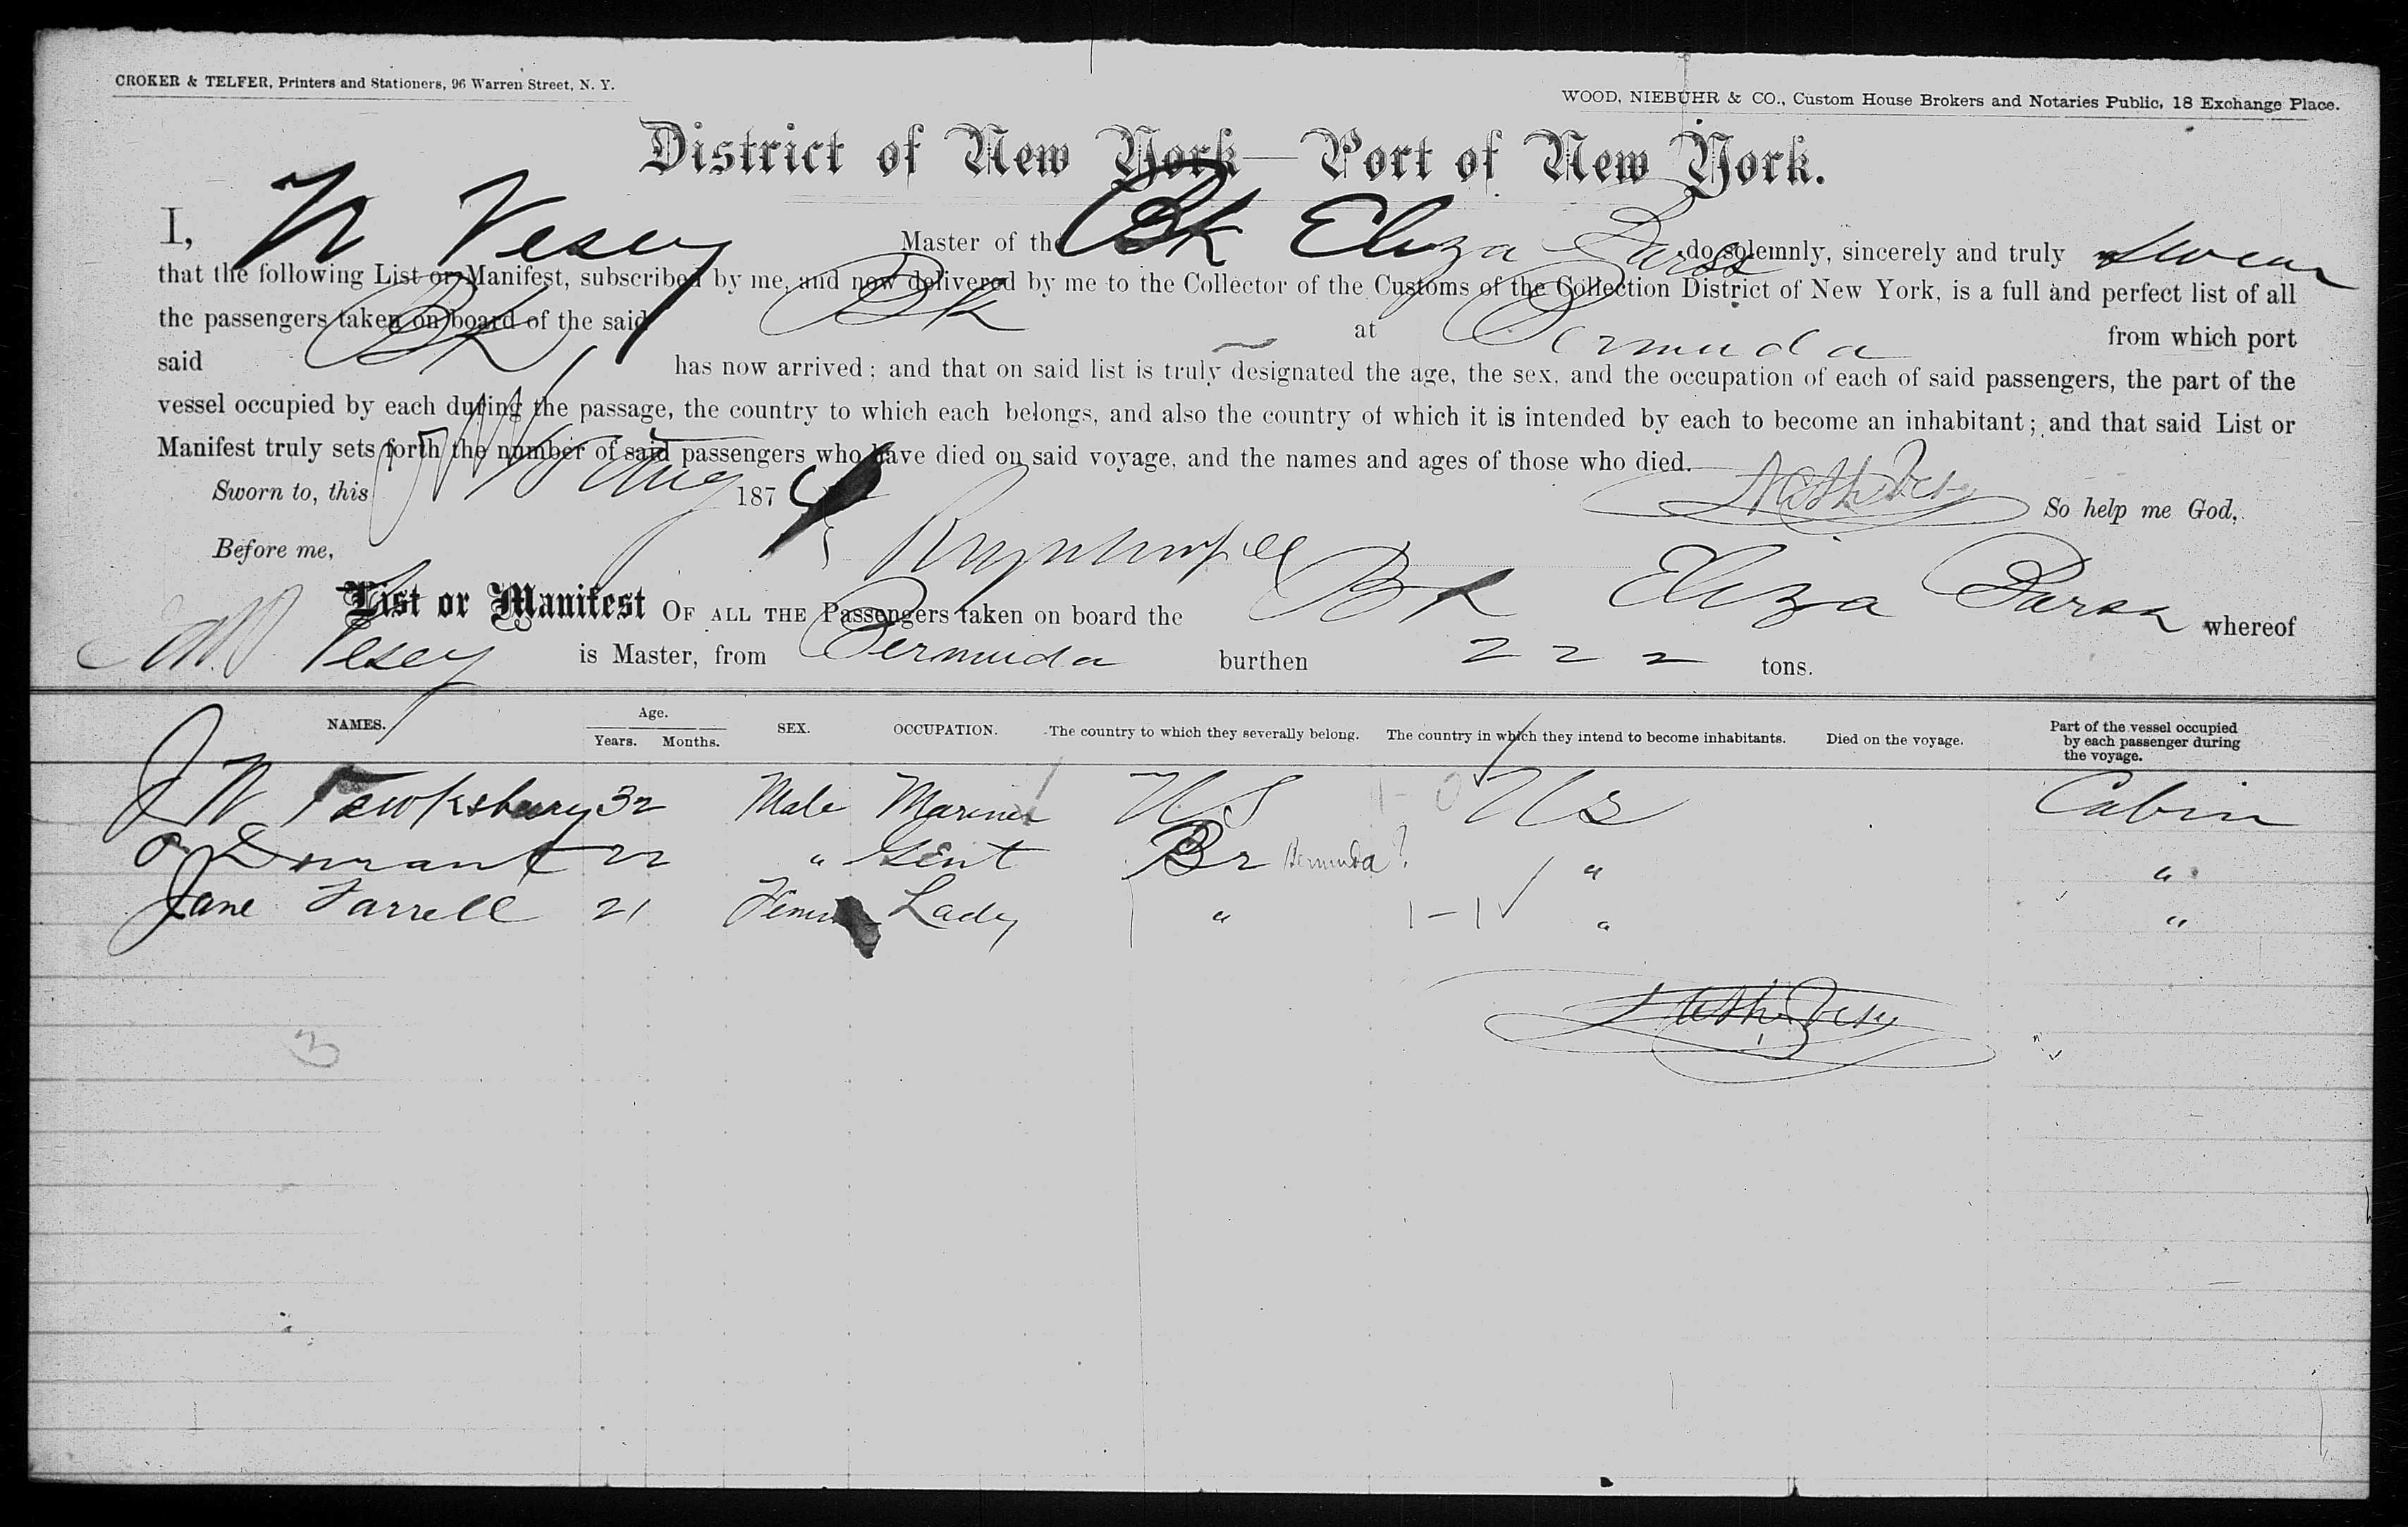 CROKER & TELFER, Printers and Stationers, 96 Warren Street, N. Y.
WOOD, NIEBUHR & CO., Custom House Brokers and Notaries Public, 18 Exchange Place.
District of New York—Port of New York.
I, N Vesey Master of the Bk Eliza do solemnly, sincerely and truly swear
that the following List or Manifest, subscribed by me, and now delivered by me to the Collector of the Customs of the Collection District of New York, is a full and perfect list of all
the passengers taken on board of the said Bk at Bermuda from which port
said Bk has now arrived; and that on said list is truly designated the age, the sex, and the occupation of each of said passengers, the part of the
vessel occupied by each during the passage, the country to which each belongs, and also the country of which it is intended by each to become an inhabitant; and that said List or
Manifest truly sets forth the number of said passengers who have died on said voyage, and the names and ages of those who died.
Sworn to, this Aug 187 Nath Vesey So help me God,
Before me,
List or Manifest OF ALL THE Passengers taken on board the Bk Eliza whereof
Vesey is Master, from Bermuda burthen 222 tons.
NAMES. Age. Years. Months. SEX. OCCUPATION. The country to which they severally belong. The country in which they intend to become inhabitants. Died on the voyage. Part of the vessel occupied by each passenger during the voyage.
J N Tewksbury 32 Male Mariner US 1-0 US Cabin
Durant 22 " Gent Br Bermuda? " "
Jane Farrell 21 Lady " 1-1 " "
Nath Vesey
3